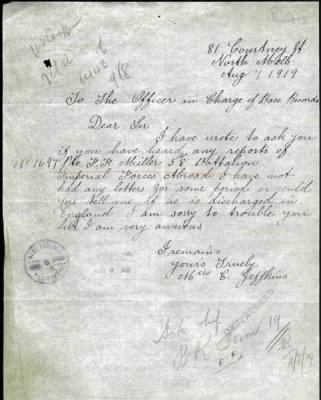 81 Courtney St
North Melb
Aug 7 1919
To The Officer in Charge of Base Records
Dear Sir
I have wrote to ask you
if you have heard any reports of
No 1697 Pte F. H. Miller 58 Battalion
Imperial Forces Abroad I have not
had any letters for some period or could
you tell me if he is discharged in
England I am sorry to trouble you
but I am very anxious
I remains
Yours Truely
Miss E. Jeffkins
Ack by
B R Form 19